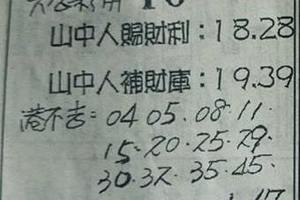 山中人賜財利:18.28
山中人補財庫:19.39
港不吉=04 05.08.11.
15.20.25.29.
30.32.35.45.